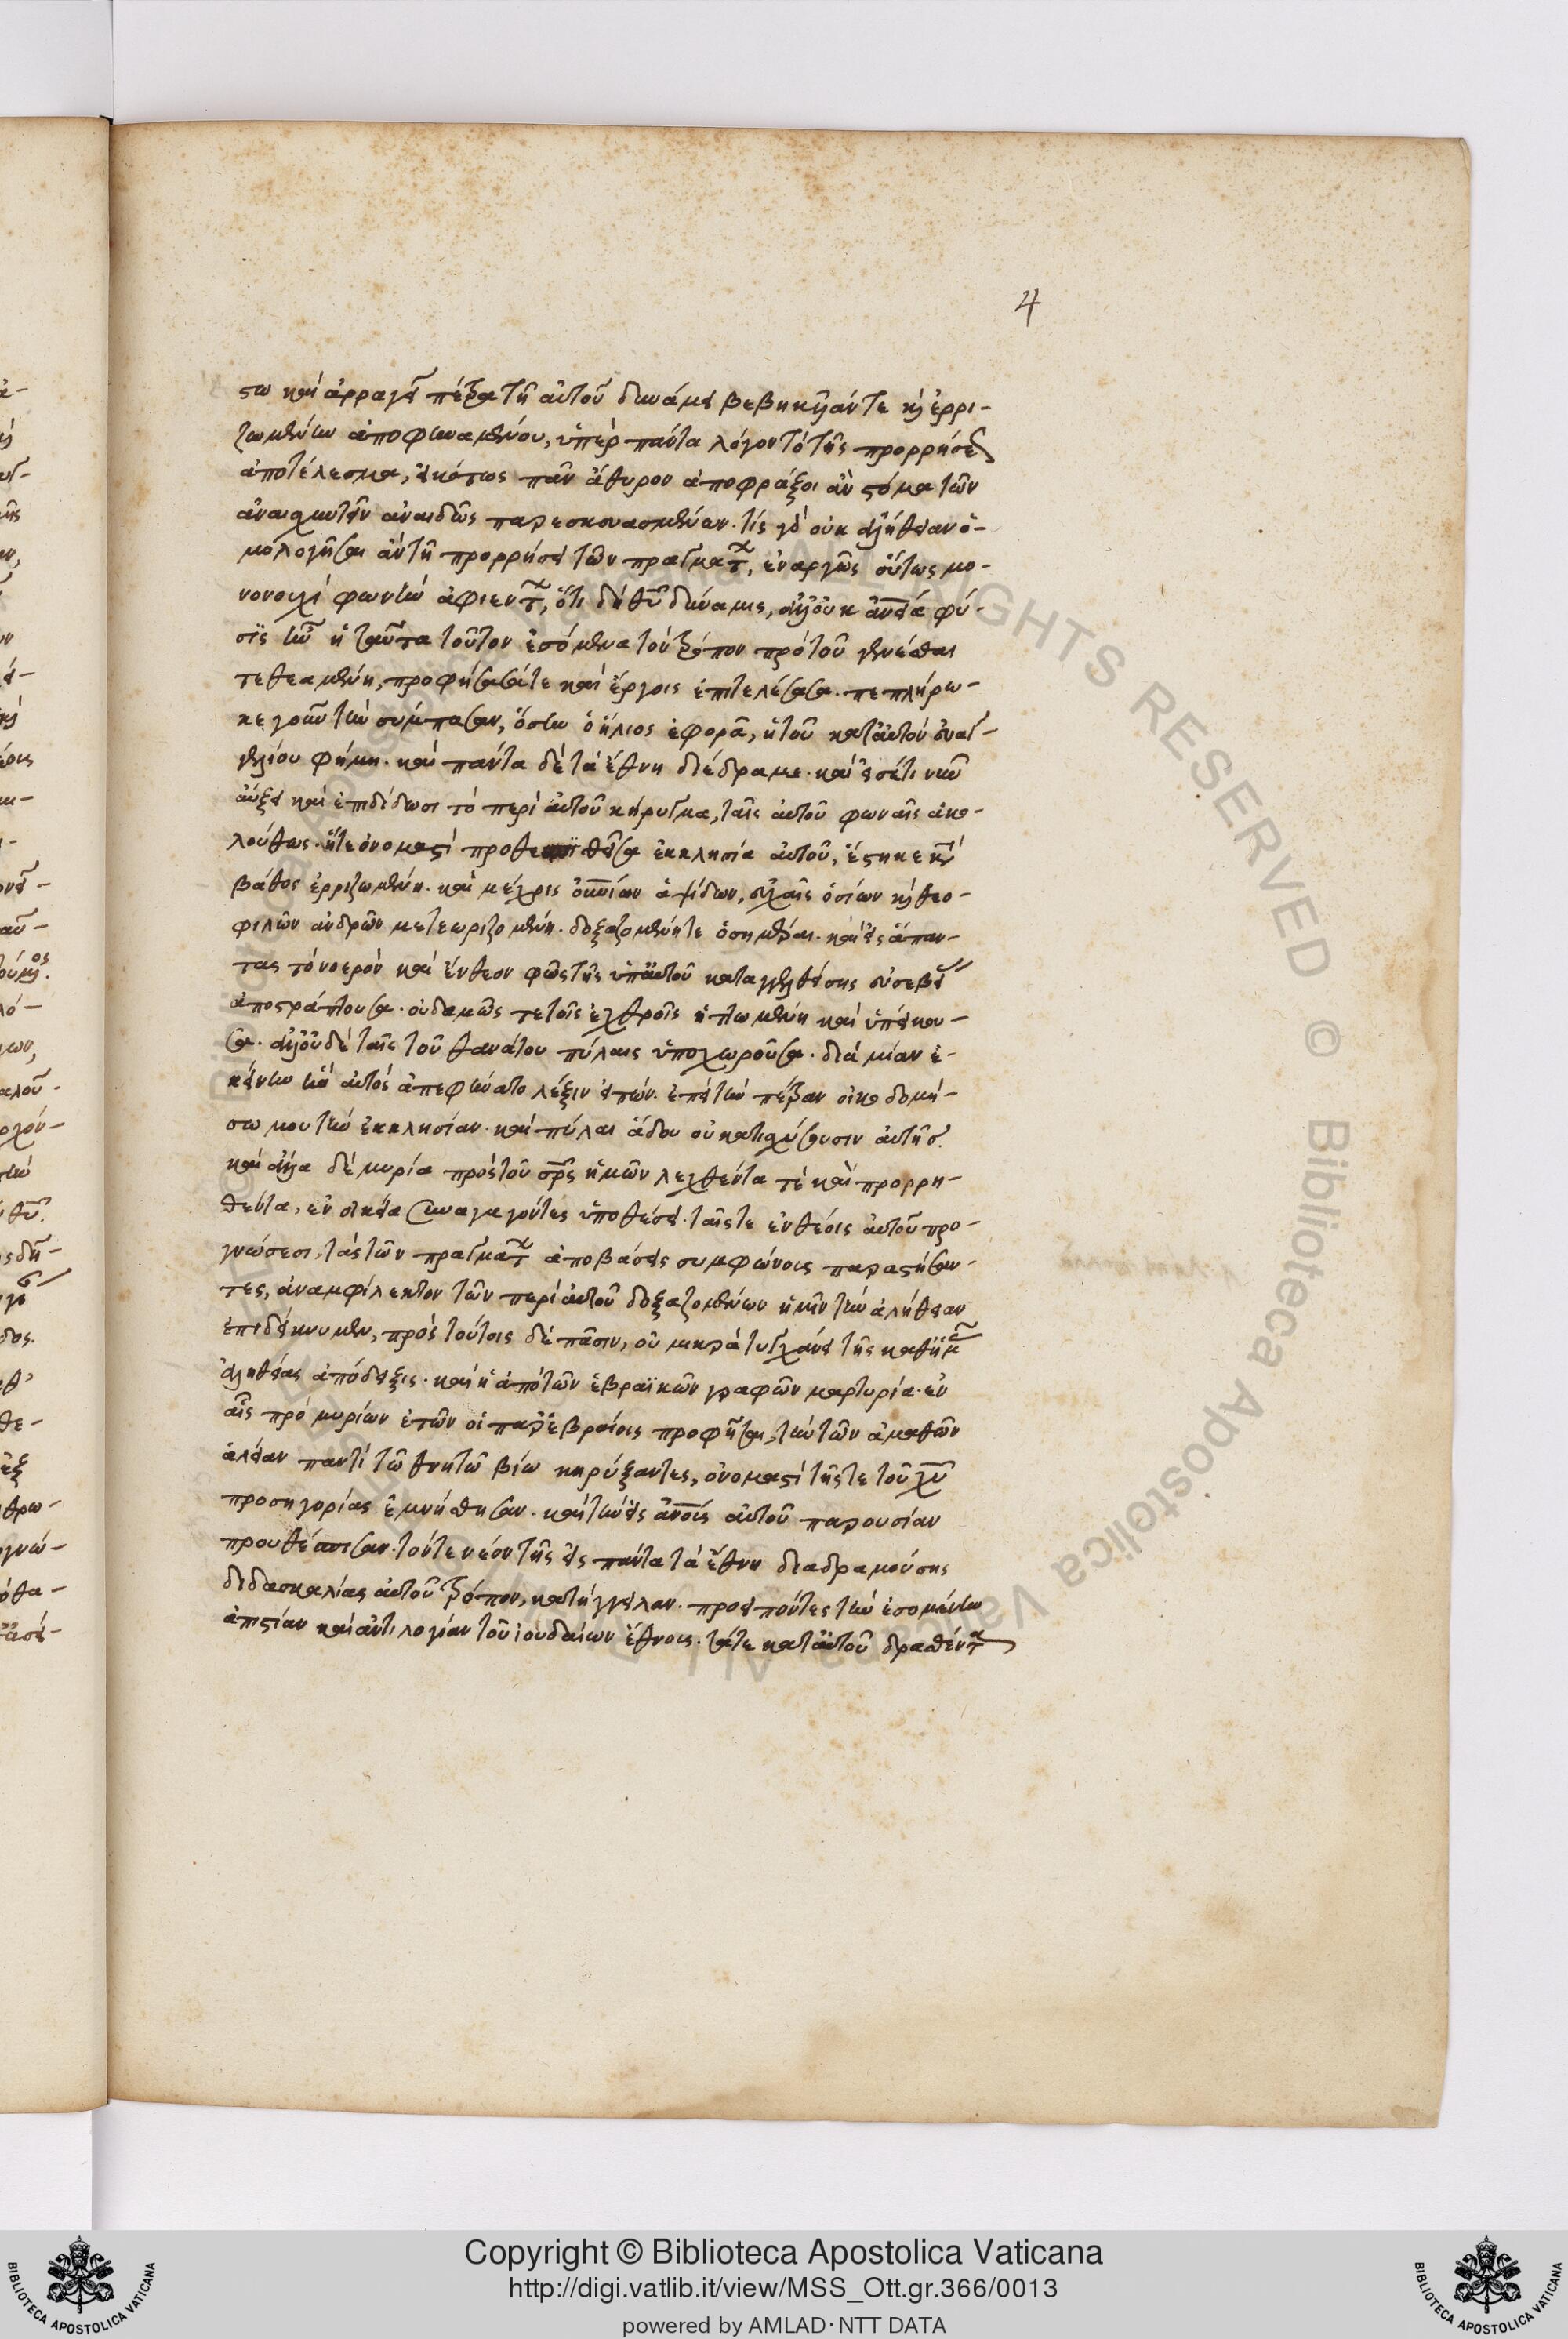 4
στω καὶ ἀρραγεῖ πέτρα τῆ αὐτοῦ δυνάμει βεβηκυῖάν τε κỳ ἐρρι-
ζωμένην ἀποφηναμένου, ὑπὲρ πάντα λόγον τὸ τῆς προρρήσεως
ἀποτέλεσμα, εἰκότως πᾶν ἄθυρον ἀποφράξοι ἂν στόμα τῶν
ἀναισχυντεῖν ἀναιδῶς παρεσκευασμένων. τίς γὰρ οὐκ ἀλήθειαν ὁ-
μολογῆσαι ἂν τῆ προρρήσει τῶν πραγμάτων, ἐναργῶς οὕτως μο-
νονουχὶ φωνὴν ἀφιέντων, ὅτι δὴ θυ δύναμις, ἀλλ' οὐκ ἀνεία φύ-
σις ἦν ἡ ταῦτα τοῦτον ἐσόμενα τὸν τρόπον πρὸ τοῦ γενέσθαι
τεθεαμένη, προφήσασά τε καὶ ἔργοις ἐπιτελέσασα. πεπλήρω-
κε γοῦν τὴν σύμπασαν, ὅσην ὁ ἥλιος ἐφορᾶ, ἡ τοῦ κατ' αὐτὸν εὐαγ-
γελίου φήμη. καὶ πάντα δὲ τὰ ἔθνη διέδραμε. καὶ εἰσέτι νῦν
αὔξει καὶ ἐπιδίδωσι τὸ περὶ αὐτοῦ κήρυγμα, ταῖς αὐτοῦ φωναῖς ἀκο-
λούθως. ἥτε ὀνομαστὶ προθεσπισθεῖσα ἐκκλησία αὐτοῦ, ἕστηκε κατὰ
βάθος ἐρριζωμένη. καὶ μέχρις οὐνίων ἁψίδων, εὐχαῖς ὁσίων κỳ θεο-
φιλῶν ἀνδρῶν μετεωριζομένη. δοξαζομένη τε ὁσημέραι. καὶ εἰς ἅπαν-
τας τὸ νοερὸν καὶ ἔνθεον φῶς τῆς ὑπ' αὐτοῦ καταγγελθείσης εὐσεβείας
ἀποστράπτουσα. οὐδαμῶς τε τοῖς ἐχθροῖς ἡττωμένη καὶ ὑπείκου-
σα. ἀλλ' οὐδὲ ταῖς τοῦ θανάτου πύλαις ὑποχωροῦσα. διὰ μίαν ἐ-
κείνην ἣν αὐτὸς ἀπεφήνατο λέξιν εἰπών. ἐπὶ τὴν πέτραν οἰκοδομή-
σω μου τὴν ἐκκλησίαν. καὶ πύλαι ἅδου οὐ κατισχύσουσιν αὐτῆς.
καὶ ἄλλα δὲ μυρία πρὸς τοῦ σρς ἡμῶν λεχθέντα τὲ καὶ προρρη-
θέντα, ἐν οἰκεία συναγαγόντες ὑποθέσει. ταῖς τε ἐνθέοις αὐτοῦ προ-
γνώσεσι, τὰς τῶν πραγμάτων ἀποβάσεις συμφώνοις παραστήσαν-
τες, ἀναμφίλεκτον τῶν περὶ αὐτοῦ δοξαζομένων ἡμῖν τὴν ἀλήθειαν
ἐπιδείκνυμεν, πρὸς τούτοις δὲ πᾶσιν, οὐ μικρὰ τυγχάνει τῆς καθ' ἡμᾶς
ἀληθείας ἀπόδειξις. καὶ ἡ ἀπὸ τῶν ἑβραϊκῶν γραφῶν μαρτυρία. ἐν
αἷς πρὸ μυρίων ἐτῶν οἱ παρ' ἑβραίοις προφῆται, τὴν τῶν ἀγαθῶν
ἀλείαν παντὶ τῶ θνητῶ βίω κηρύξαντες, ὀνομαστὶ τῆς τε τοῦ χυ
προσηγορίας ἐμνήσθησαν. καὶ τὴν εἰς ἀνοις αὐτοῦ παρουσίαν
προυθέσπισαν. τόν τε νέον τῆς εἰς πάντα τὰ ἔθνη διαδραμούσης
διδασκαλίας αὐτοῦ τρόπον, κατήγγειλαν. προειπόντες τὴν ἐσομένην
ἀπιστίαν καὶ ἀντιλογίαν τοῦ ἰουδαίων ἔθνοις. τά τε κατ' αὐτοῦ δρασθέντα
Copyright © Biblioteca Apostolica Vaticana
http://digi.vatlib.it/view/MSS_Ott.gr.366/0013
powered by AMLAD·NTT DATA